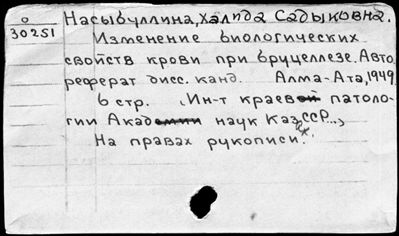 о
30251
Насыбуллина, Халида Садыковна.
Изменение биологических
свойств крови при бруцеллезе. Авто
реферат дисс. канд. Алма-Ата, 1949
6 стр. (Ин-т краевой патоло-
гии Академии наук Каз. ССР...)
На правах рукописи.